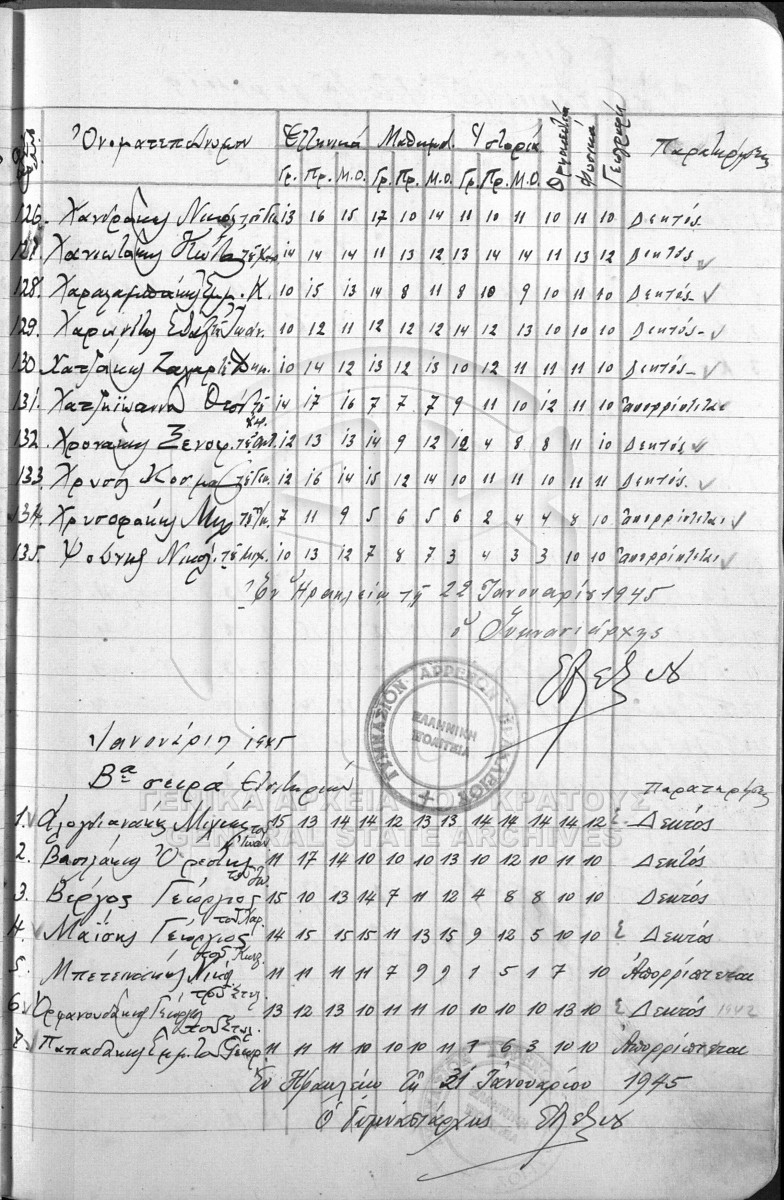 Ὀνοματεπώνυμον Ἑλληνικά Μαθημ. Ἱστορία Θρησκευτικά Φυσικά Γεωγραφ. Παρατηρήσεις
Γρ. Πρ. Μ.Ο. Γρ. Πρ. Μ.Ο. Γρ. Πρ. Μ.Ο.
126. Χανδράκης Νικόλ. 13 16 15 17 10 14 11 10 11 10 11 10 Δεκτός
127. Χανιωτάκης 14 14 14 11 13 12 13 14 14 11 13 12 Δεκτός
128. Χαραλαμπάκης Ἐμμ. Κ. 10 15 13 14 8 11 8 10 9 10 11 10 Δεκτός
129. Χαρωνίτης 10 12 11 12 12 12 14 12 13 10 10 10 Δεκτός
130 Χατζάκης Ζαχαρ. 10 14 12 13 12 13 10 12 11 11 11 10 Δεκτός
131. Χατζηϊωάννου 14 17 16 7 7 7 9 11 10 12 11 10 Ἀπορρίπτεται
132. Χρονάκης Ξενοφ. 12 13 13 14 9 12 12 4 8 8 11 10 Δεκτός
133 Χρυσός Κοσμᾶς 12 16 14 15 12 14 10 11 11 10 11 11 Δεκτός
134. Χρυσοφάκης Μιχ. 7 11 9 5 6 5 6 2 4 4 8 10 Ἀπορρίπτεται
135. Ψούνης Νικόλ. τοῦ Μιχ. 10 13 12 7 8 7 3 4 3 3 10 10 Ἀπορρίπτεται
Ἐν Ἡρακλείῳ τῇ 22 Ἰανουαρίου 1945
ὁ Γυμνασιάρχης
ΓΥΜΝΑΣΙΟΝ ΑΡΡΕΝΩΝ ΗΡΑΚΛΕΙΟΥ
ΕΛΛΗΝΙΚΗ ΠΟΛΙΤΕΙΑ
Ἰανουάριος 1945
Βα σειρά Παρατηρήσεις
ΓΕΝΙΚΑ ΑΡΧΕΙΑ ΤΟΥ ΚΡΑΤΟΥΣ
GENERAL STATE ARCHIVES
1. 15 13 14 14 12 13 13 14 14 14 14 12 Δεκτός
2. Βασιλάκης Ὀρέστης 11 17 14 10 10 10 13 10 12 10 11 10 Δεκτός
3. Βέργος Γεώργιος 15 10 13 14 7 11 12 4 8 8 10 10 Δεκτός
4. Μαΐσης Γεώργιος τοῦ Χαρ. 14 15 15 15 11 13 15 9 12 5 10 10 Δεκτός
5. Μπετεινάκης Νικόλ. 11 11 11 11 7 9 9 1 5 1 7 10 Ἀπορρίπτεται
6. Ὀρφανουδάκης Γεώργ. τοῦ Στυλ. 13 12 13 10 11 11 10 10 10 10 13 10 Δεκτός 1942
7. Παπαδάκης Ἐμμ. του Γεωρ. 11 11 11 10 10 10 11 7 6 3 10 10 Ἀπορρίπτεται
Ἐν Ἡρακλείῳ τῇ 31 Ἰανουαρίου 1945
Ὁ Γυμνασιάρχης